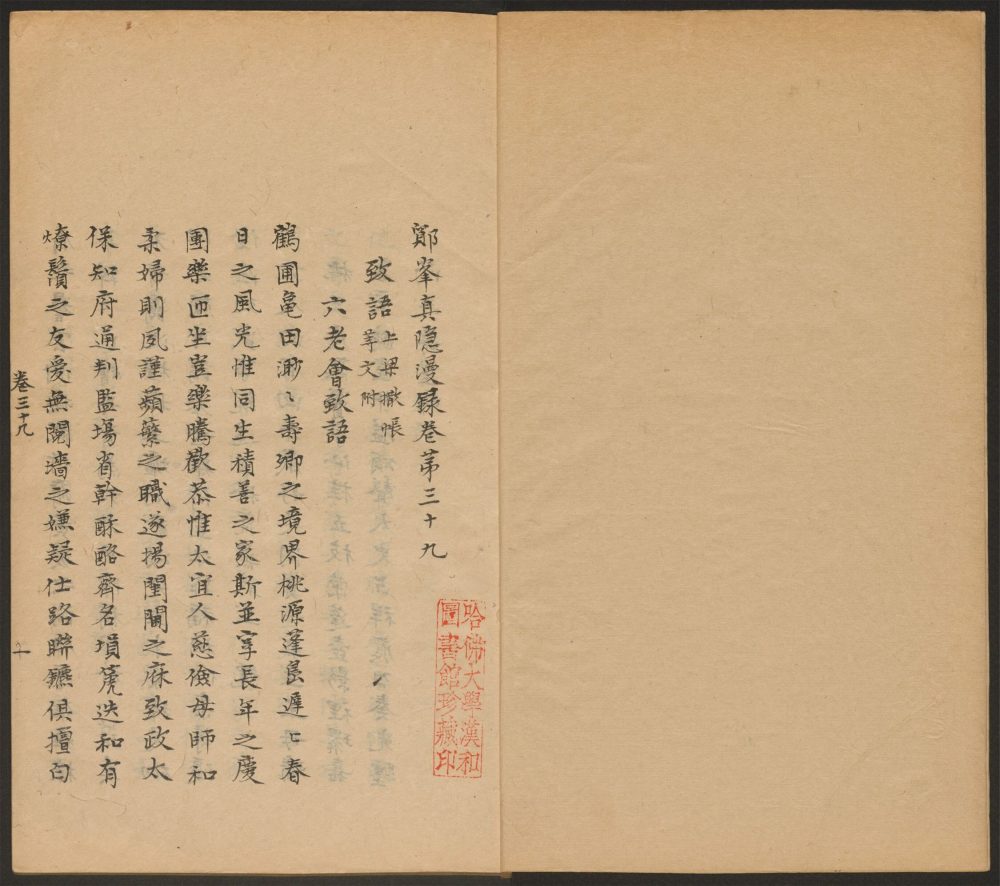 鄮峯真隐漫録卷苐三十九
致語上梁撒帳䓁文附
六老會致語
鶴圃亀田渺〻壽鄉之境界桃源蓬島遲〻春
日之風光惟同生積善之家斯並享長年之慶
團欒匝坐豈樂騰歡恭惟太宜人慈儉母師和
柔婦則夙謹蘋蘩之職遂揚閨閫之庥致政太
保知府通判監場省幹酥酪齊名塤箎迭和有
燎鬚之友愛無鬩墻之嫌疑仕路聯鑣俱擅白
卷三十九
哈佛大學漢和
圖書館珍藏印